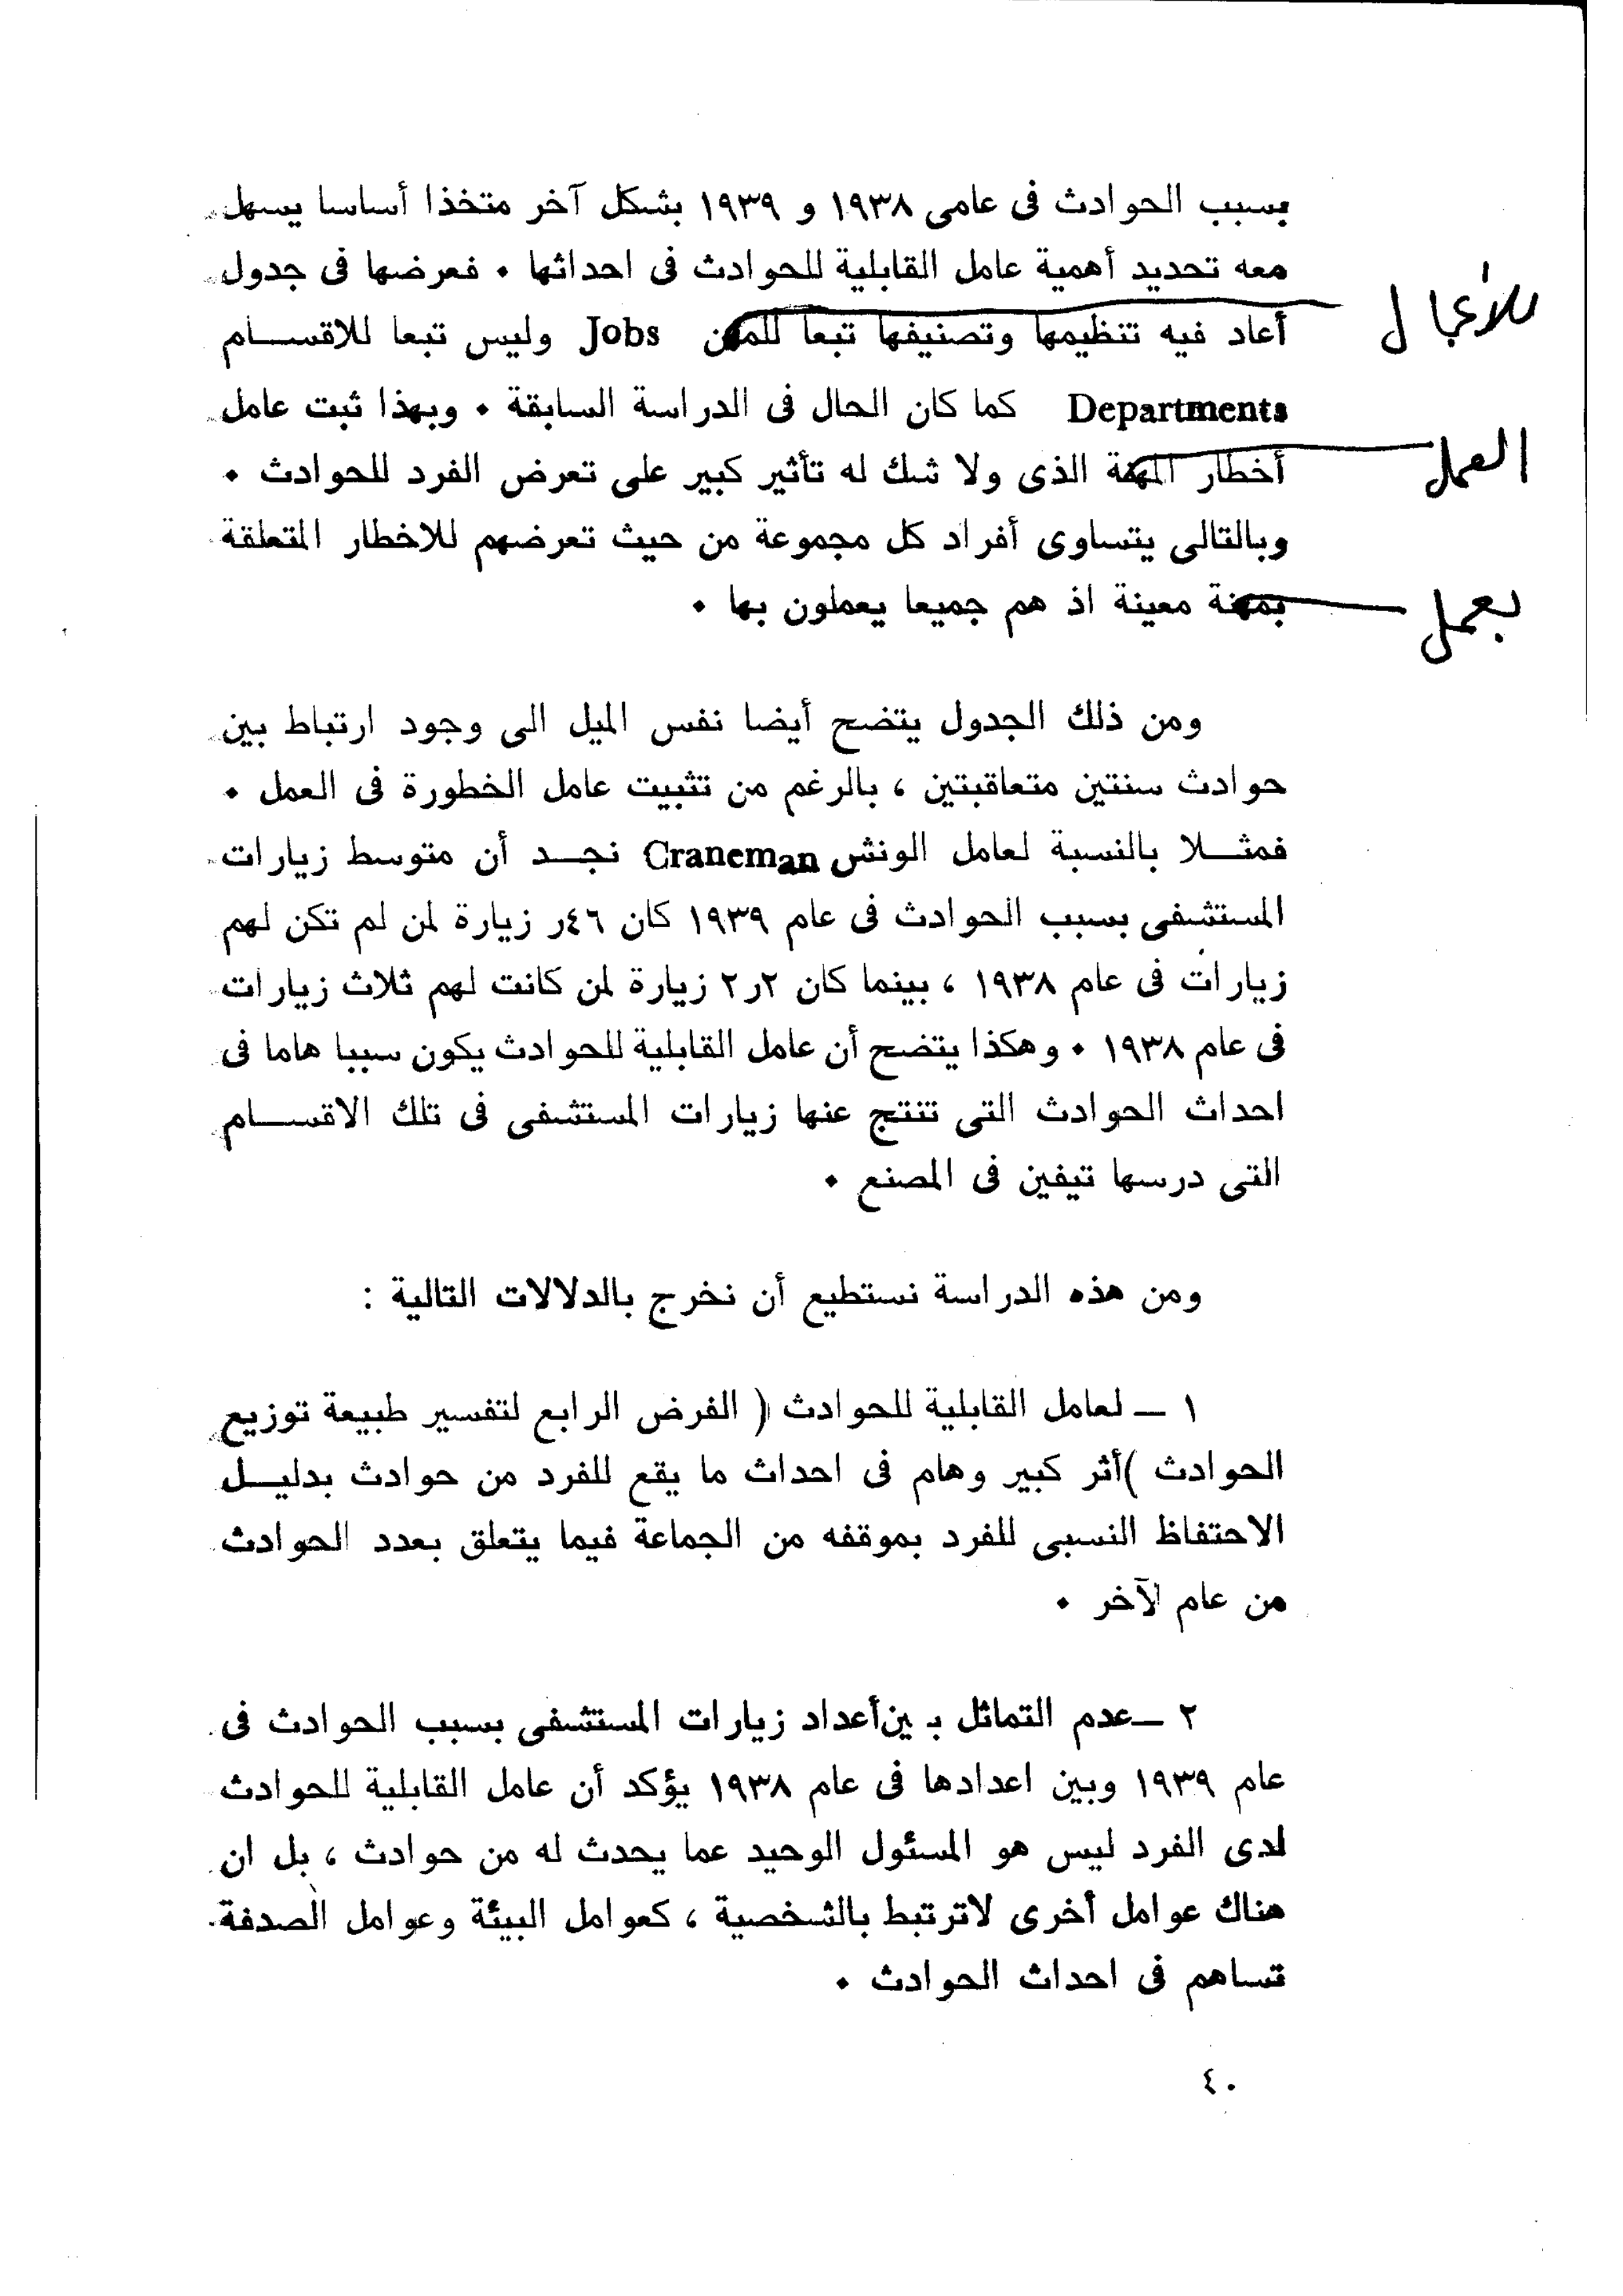 بسبب الحوادث فى عامى ١٩٣٨ و ١٩٣٩ بشكل آخر متخذا أساسا يسهل
معه تحديد أهمية عامل القابلية للحوادث فى احداثها • فعرضها فى جدول
للأعمال
أعاد فيه تنظيمها وتصنيفها تبعا للمهن Jobs وليس تبعا للاقسـام
Departments كما كان الحال فى الدراسة السابقة • وبهذا ثبت عامل
العمل
أخطار المهنة الذى ولا شك له تأثير كبير على تعرض الفرد للحوادث •
وبالتالى يتساوى أفراد كل مجموعة من حيث تعرضهم للاخطار المتعلقة
بعمل
بمهنة معينة اذ هم جميعا يعملون بها •
ومن ذلك الجدول يتضح أيضا نفس الميل الى وجود ارتباط بين
حوادث سنتين متعاقبتين ، بالرغم من تثبيت عامل الخطورة فى العمل •
فمثـلا بالنسبة لعامل الونش Craneman نجـد أن متوسط زيارات
المستشفى بسبب الحوادث فى عام ١٩٣٩ كان ٤٦ر زيارة لمن لم تكن لهم
زيارات فى عام ١٩٣٨ ، بينما كان ٢ر٢ زيارة لمن كانت لهم ثلاث زيارات
فى عام ١٩٣٨ • وهكذا يتضح أن عامل القابلية للحوادث يكون سببا هاما فى
احداث الحوادث التى تنتج عنها زيارات المستشفى فى تلك الاقسـام
التى درسها تيفين فى المصنع •
ومن هذه الدراسة نستطيع أن نخرج بالدلالات التالية :
١ ــ لعامل القابلية للحوادث ( الفرض الرابع لتفسير طبيعة توزيع
الحوادث )أثر كبير وهام فى احداث ما يقع للفرد من حوادث بدليـل
الاحتفاظ النسبى للفرد بموقفه من الجماعة فيما يتعلق بعدد الحوادث
من عام لآخر •
٢ ــعدم التماثل بـ ينأعداد زيارات المستشفى بسبب الحوادث فى
عام ١٩٣٩ وبين اعدادها فى عام ١٩٣٨ يؤكد أن عامل القابلية للحوادث
لدى الفرد ليس هو المسئول الوحيد عما يحدث له من حوادث ، بل ان
هناك عوامل أخرى لاترتبط بالشخصية ، كعوامل البيئة وعوامل الصدفة
تساهم فى احداث الحوادث •
٤٠